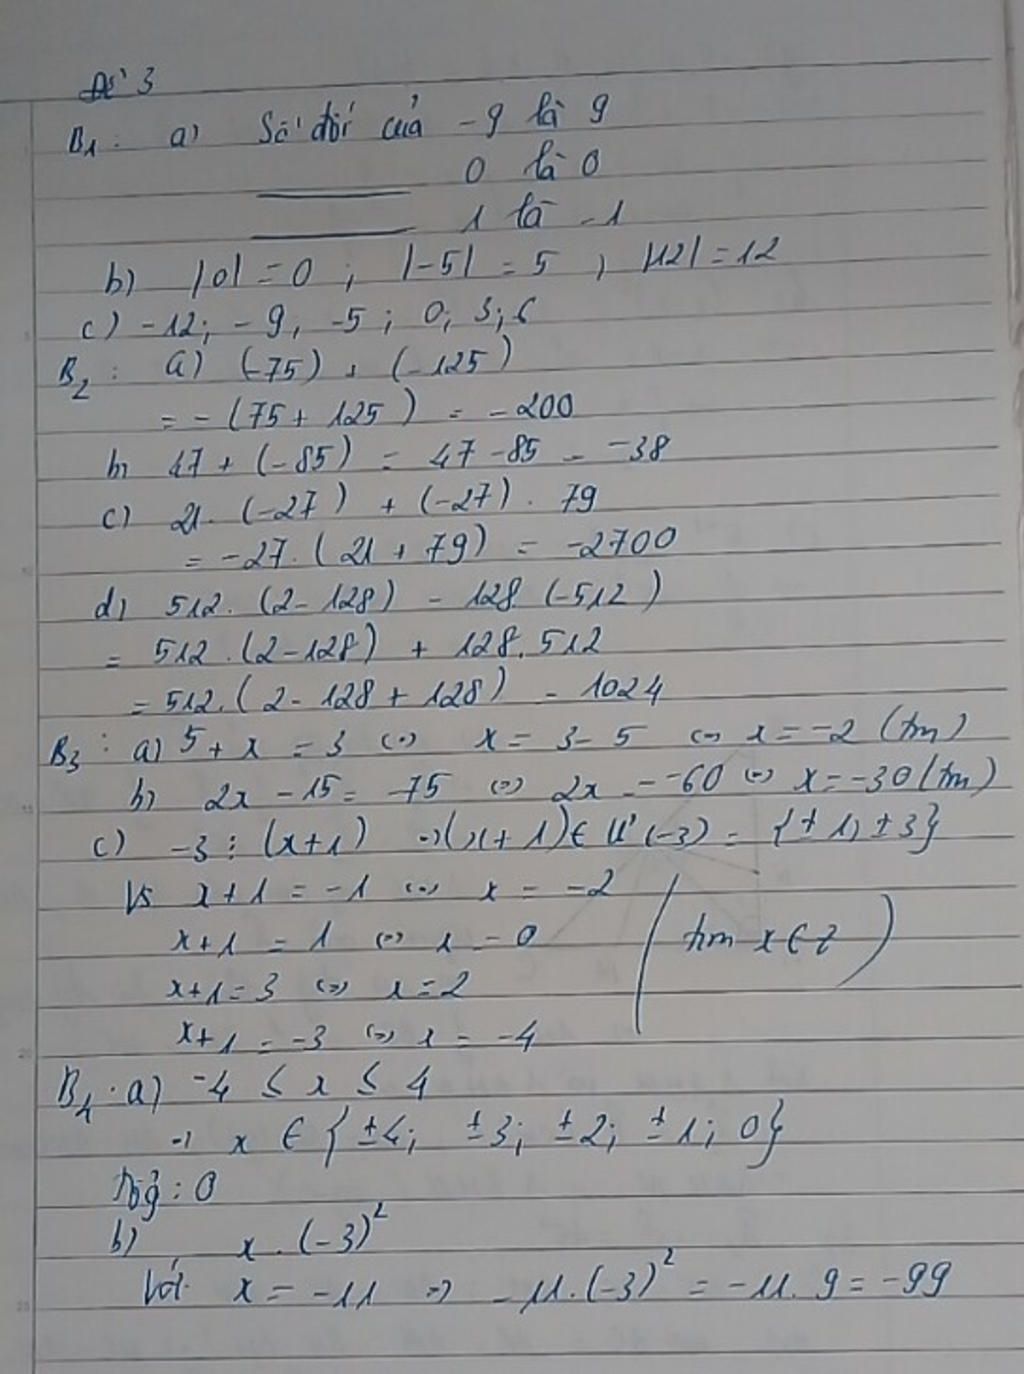 Đề 3
B1: a) Số đối của -9 là 9
0 là 0
1 là -1
b) |0| = 0 ; |-5| = 5 ; |12| = 12
c) -12; -9, -5; 0; 3; 6
B2: a) (-75) + (-125)
= -(75 + 125) = -200
b) 47 + (-85) = 47 - 85 = -38
c) 21. (-27) + (-27). 79
= -27. (21 + 79) = -2700
d) 512. (2 - 128) - 128. (-512)
= 512. (2 - 128) + 128. 512
= 512. (2 - 128 + 128) = 1024
B3: a) 5 + x = 3 <=> x = 3 - 5 <=> x = -2 (tm)
b) 2x - 15 = -75 <=> 2x = -60 <=> x = -30 (tm)
c) -3 ⋮ (x+1) => (x+1) ∈ Ư(-3) = {±1, ±3}
Vs x+1 = -1 <=> x = -2
x+1 = 1 <=> x = 0 (tm x ∈ Z)
x+1 = 3 <=> x = 2
x+1 = -3 <=> x = -4
B4: a) -4 ≤ x ≤ 4
=> x ∈ {±4; ±3; ±2; ±1; 0}
Tổg: 0
b) x. (-3)²
Với x = -11 => -11. (-3)² = -11. 9 = -99